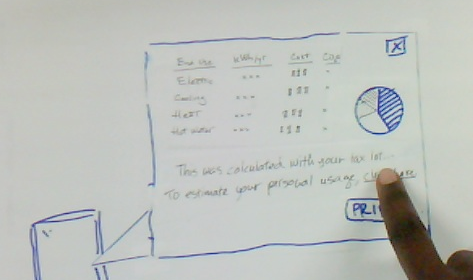 End Use kWh/yr Cost CO2e
Electric
Cooling $$$
Heat $$$
Hot Water $$$
This was calculated with your tax lot...
To estimate your personal usage, click here
PRI
X